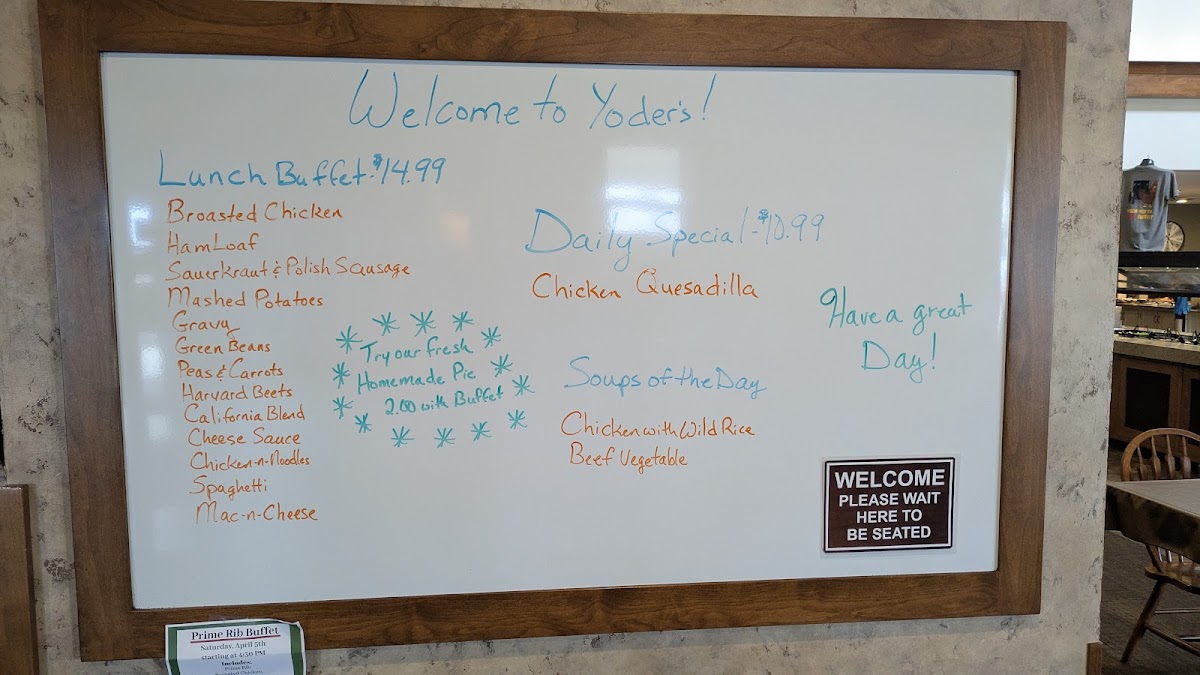 Welcome to Yoder's!
Lunch Buffet-$14.99
Broasted Chicken
HamLoaf
Sauerkraut & Polish Sausage
Mashed Potatoes
Gravy
Green Beans
Peas & Carrots
Harvard Beets
California Blend
Cheese Sauce
Chicken-n-Noodles
Spaghetti
Mac-n-Cheese
Try our fresh
Homemade Pie
2.00 with Buffet
Daily Special-$10.99
Chicken Quesadilla
Soups of the Day
Chicken with Wild Rice
Beef Vegetable
Have a great
Day!
WELCOME
PLEASE WAIT
HERE TO
BE SEATED
Prime Rib Buffet
Saturday, April 5th
starting at 4:30 PM
Includes:
Prime Rib